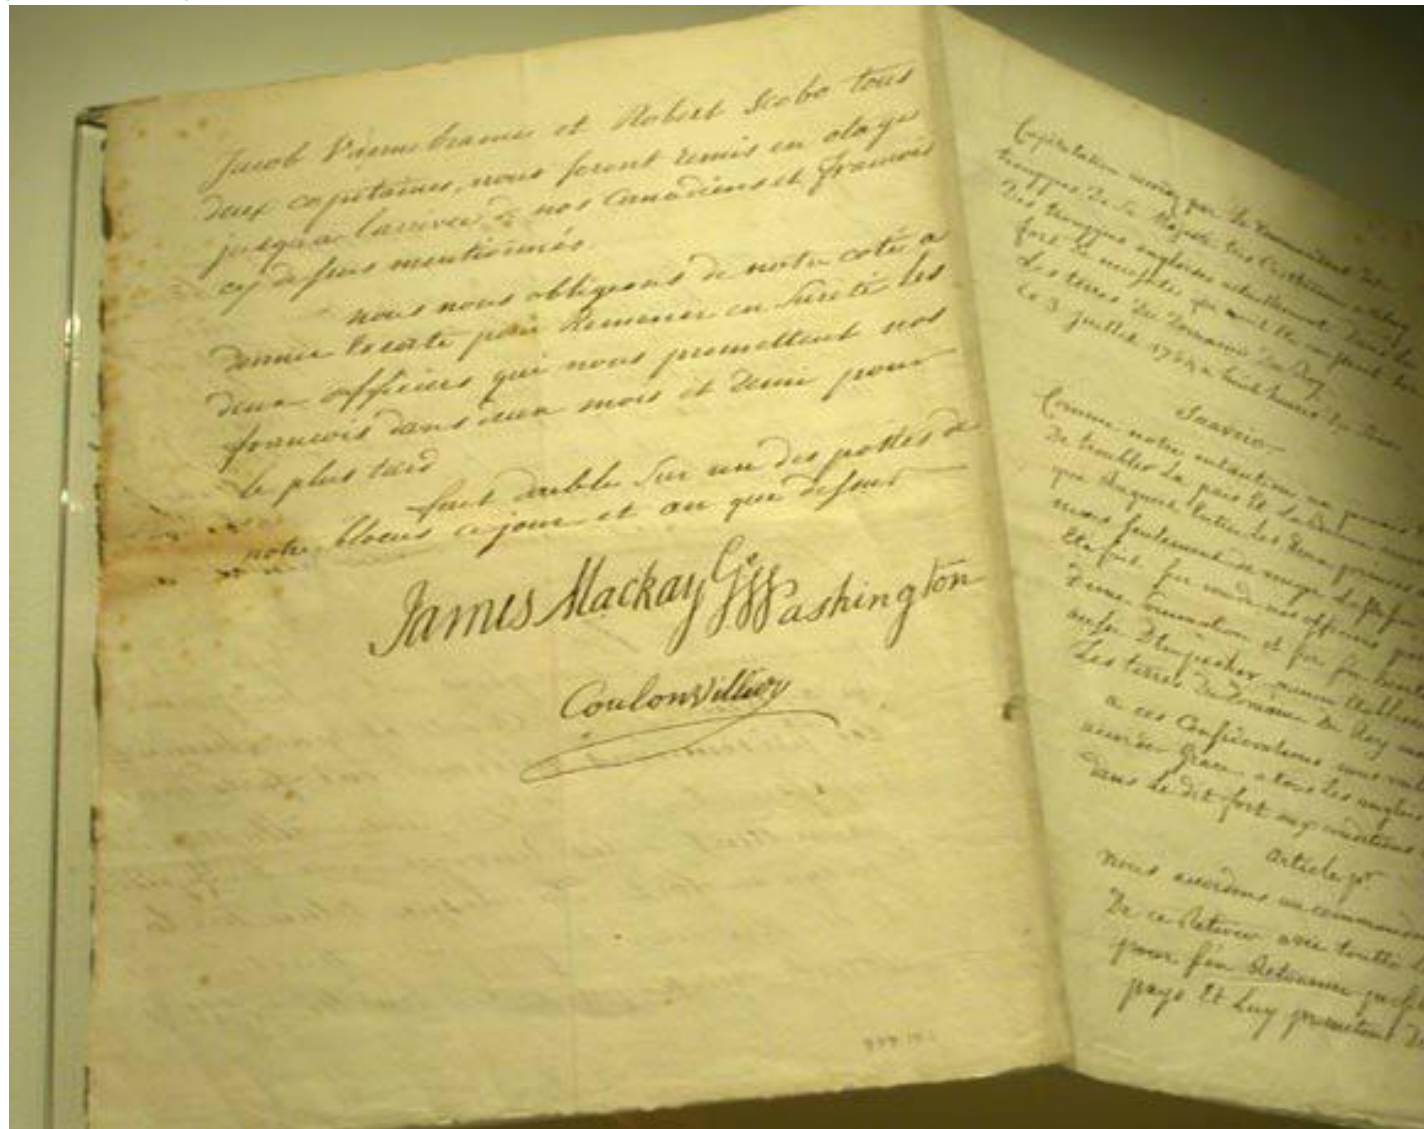 Jacob Vannebrame et Robert Scobo tous
deux capitaines, nous seront remis en otage
jusqu'a larrivée de nos Canadiens et francois
cy dessus mentionnés.
nous nous obligeons de notre coté a
donner Escorte pour Ramener en Sureté les
deux officiers qui nous promettent nos
francois dans deux mois et demi pour
le plus tard
fait double Sur un des postes de
notre blocus ce jour et an que dessus
James Mackay Go Washington
CoulonVilliers
Capitulation accordée par le Commandant des
troupes de Sa Majesté tres Chrestienne
Des troupes angloises actuellement dans le
fort de necessité qui avoit été construit
Les terres du Domaine du Roy
Ce 3 juillet 1754 a huit heures du Soir
Scavoir
Comme notre intention na jamais
De troubler La paix Et La bonne
que Regnoit Entre Les deux princes
mais Seulement de venger
Et a fait Sur un de nos officiers
D'une Sommation et Sur Son
aussy D'Empecher aucun
Les terres du Domaine du Roy
a ces Considerations nous
accorder Grace a tous Les anglois
dans Le dit fort aux conditions
article 1er
nous accordons au commandant
De ce Retirer avec toutte
pour Sen Retourner
pays Et Luy promettons